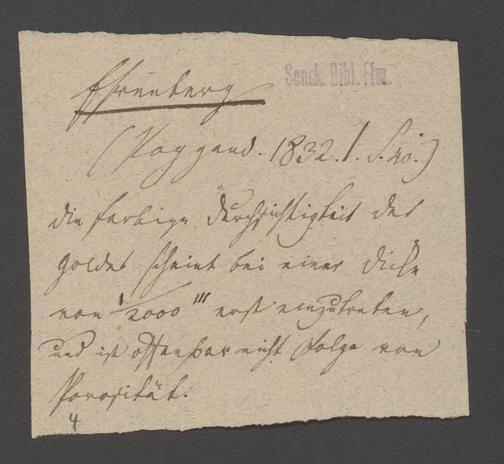 Ehrenberg
Senck. Bibl. Ffm.
(Poggend. 1832. 1. S. 40.)
die farbige Durchsichtigkeit des
Goldes scheint bei einer Dicke
von 1/2000 ''' erst einzutreten,
und ist offenbar nicht Folge von
Porosität.
4